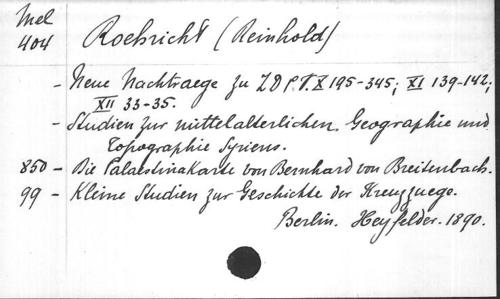 Mel
404
Roehricht (Reinhold)
- Neue Nachtraege zu ZDP.V. X 195-345; XI 139-142;
XII 33-35.
- Studien zur mittelalterlichen Geographie und
Topographie Syriens.
850 - Die Palaestinakarte von Bernhard von Breitenbach.
99 - Kleine Studien zur Geschichte der Kreuzzuege.
Berlin. Heyfelder. 1890.